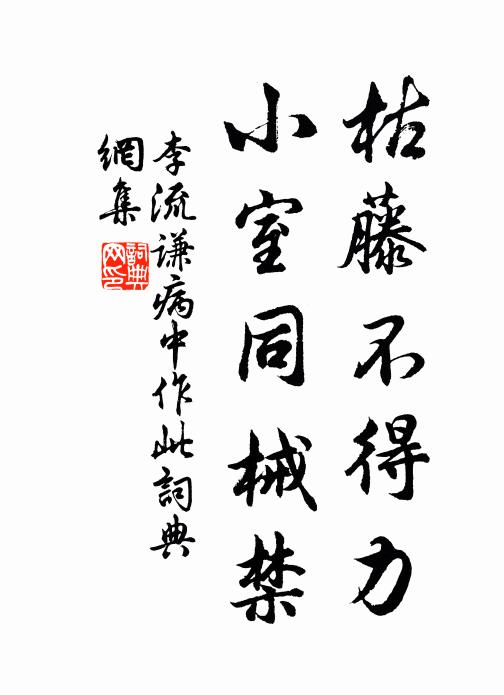 枯藤不得力
小室同械禁
李流谦病中作此詞典
網集
詞典
网印